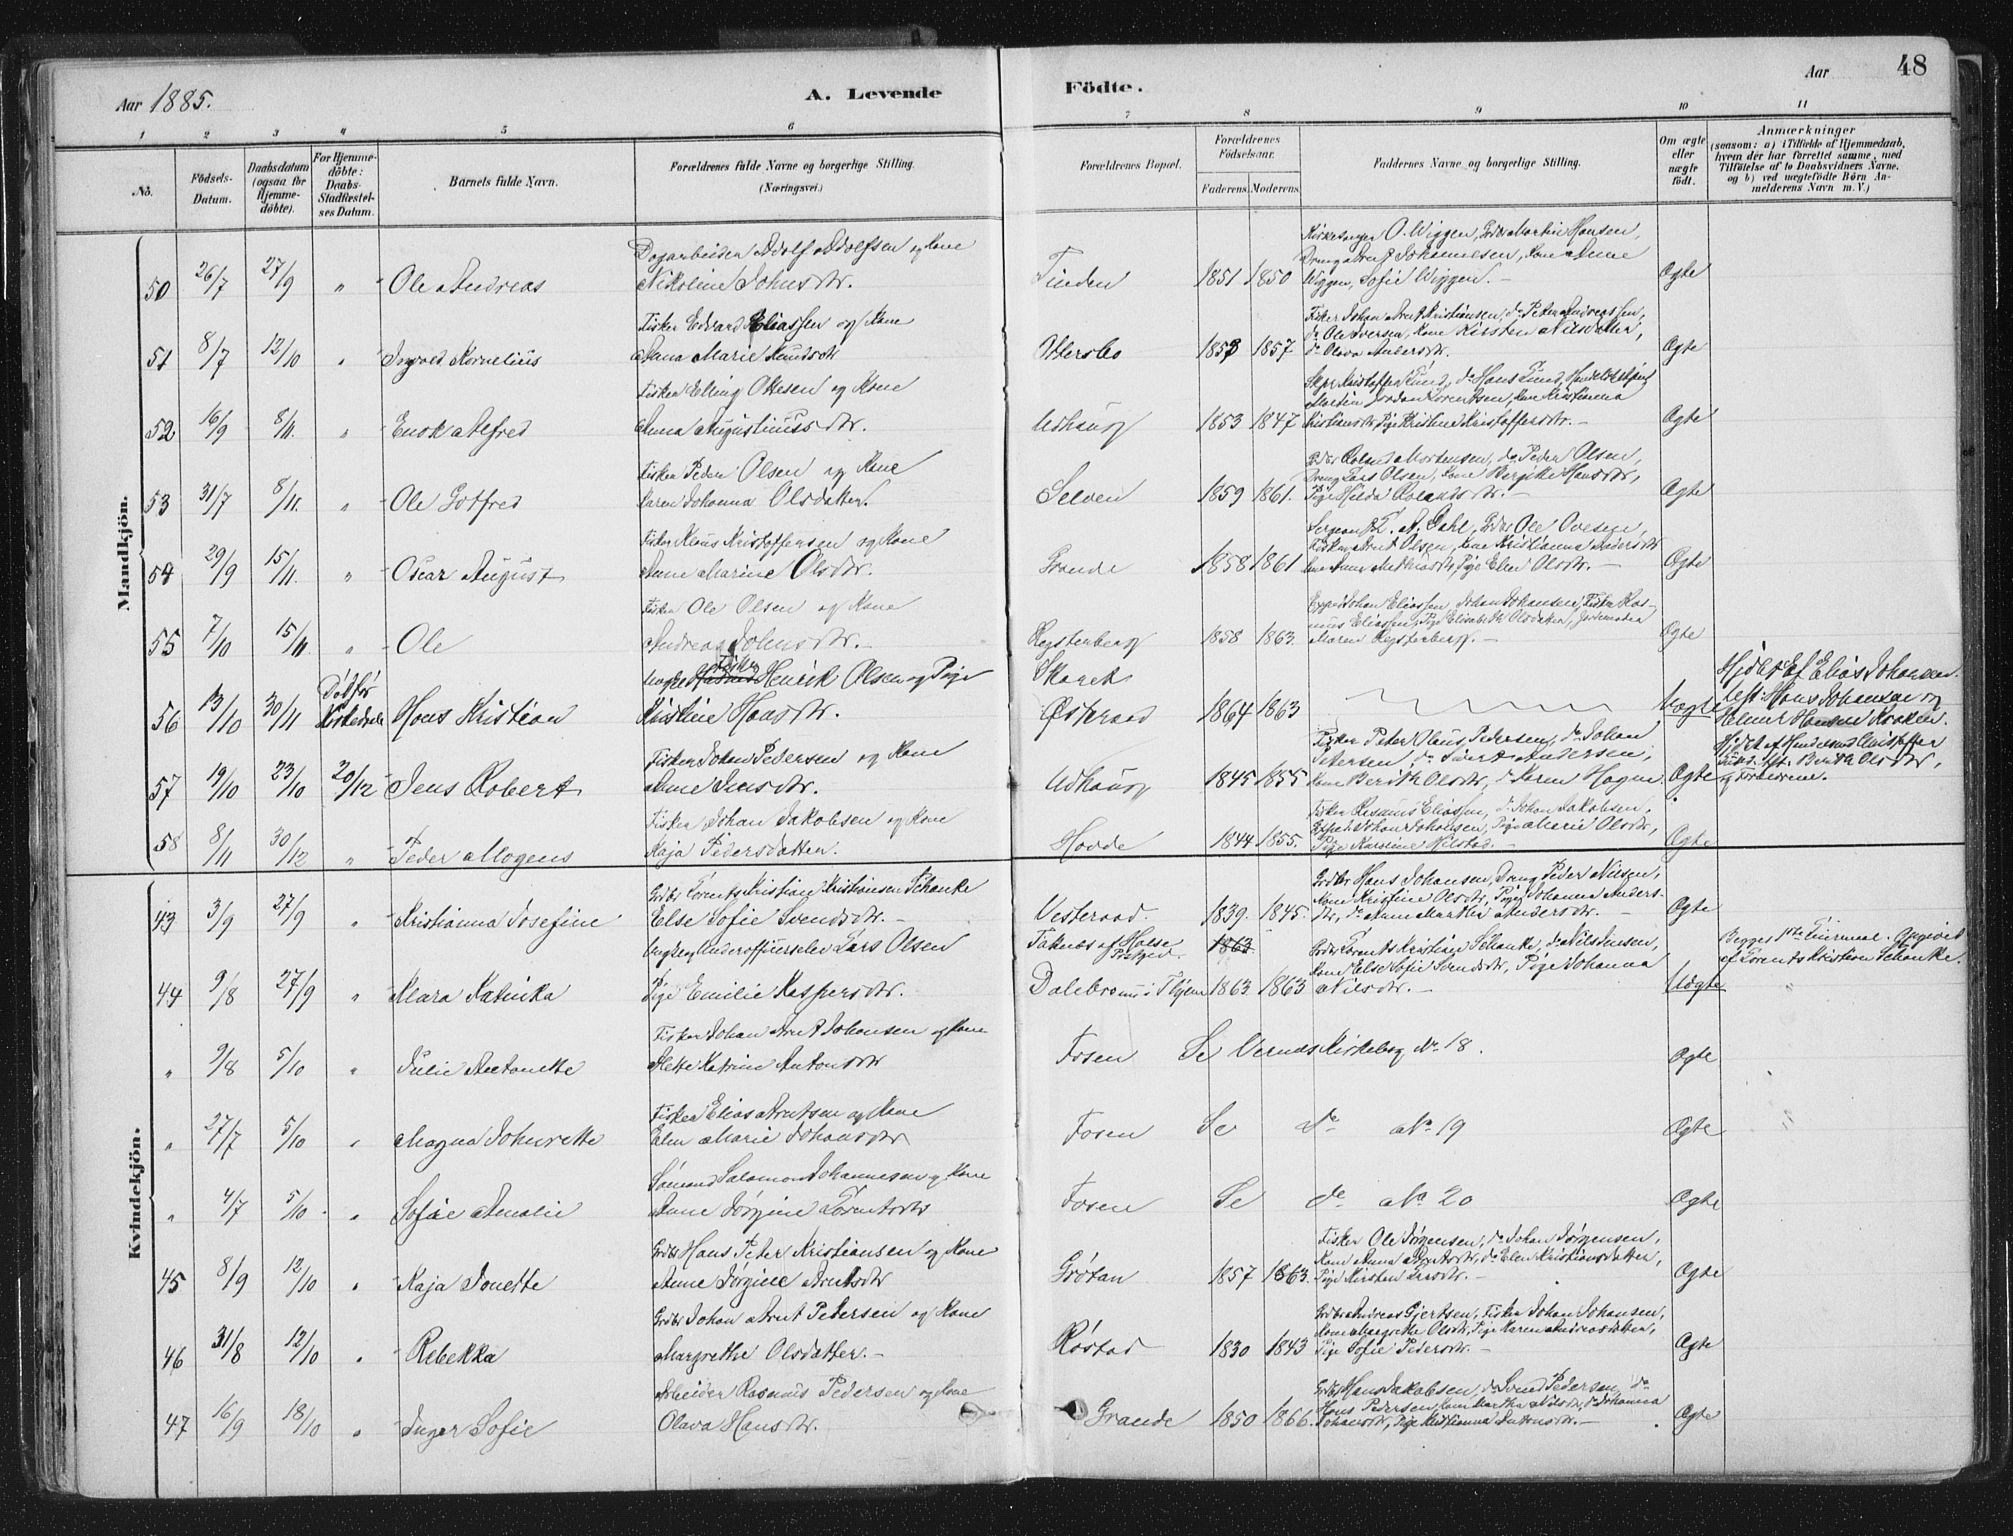 Aar 1885.
A. Levende Födte.
Aar
48
1 2 3 4 5 6 7 8 9 10 11
No.
Födsels-Datum.
Daabsdatum (ogsaa for Hjemme-döbte).
For Hjemme-döbte: Daabs-Stadfæstel-ses Datum.
Barnets fulde Navn.
Forældrenes fulde Navne og borgerlige Stilling.
(Næringsvei.)
Forældrenes Bopæl.
Forældrenes Födselsaar.
Faderens. Moderens.
Faddernes Navne og borgerlige Stilling.
Om ægte eller uægte födt.
Anmærkninger
(saasom: a) i Tilfælde af Hjemmedaab, hvem der har forrettet samme, med Tilföielse af to Daabsvidners Navne, og b) ved uægtefödte Börn An-melderens Navn m. V.)
Mandkjön.
50 26/7 27/9 " Ole Andreas
Dagarbeider Adolf Adolfsen og Kone
Nikoline Johnsdtr.
Tinden 1851 1850
Kirkesanger O. Wiggen, Gdbr Martin Hansen,
Dreng Arnt Johannesen, Kone Anne
Wiggen, Sofie Wiggen. -
Ægte
51 8/7 12/10 " Ingvald Kornelius
Fisker Edvard Eliassen og Kone
Anna Marie Knudsdtr
Uttersbo 1857
Fisker Johan Arnt Kristiansen, do Peter Andreassen,
do Ole Iversen, Kone Kirsten Nilsdatter,
do Olava Andersdtr.
Ægte
52 16/9 8/11. " Enok Alfred
Fisker Elling Ottesen og Kone
Anna Augustinusdtr.
Udhaug 1853 1847
Kristoffer Lund, do Hans Lund,
Martin Lorentsen, Kone Kristianna
Kristiansdtr, Pige Kristine Kristoffersdtr. -
Ægte
53 31/7 8/11. " Ole Gotfred
Fisker Peder Olsen og Kone
Karen Johanna Olsdatter.
Selven 1859 1861.
Gdbr Roland Mortensen, do Peder Olsen,
Dreng Lars Olsen, Kone Bergitte Hansdtr,
Pige Hilda Rolandsdtr. -
Ægte
54 29/9 15/11. " Oscar August
Fisker Klaus Kristoffersen og Kone
Anne Marine Olsdtr.
Grande 1858 1861
Sergeant T. A. Dahl, Gdbr Ole Ovesen,
Fisker Arnt Olsen, Kone Kristianna Andersdtr
Kone Anna Mathiasdtr, Pige Elen Olsdtr. -
Ægte
55 7/10 15/11. " Ole
Fisker Ole Olsen og Kone
Andrea Johnsdtr. -
Røgsterberg 1858 1863.
Johan Eliassen, Johan Johansen, Fisker Ras-
mus Eliassen, Pige Elisabeth Olsdatter, Jordemoder
Maren Røgsterberg. -
Ægte
56 13/10 30/11 Død før Kirkedaab Hans Kristian
Ungkarl Fisker Henrik Olsen og Pige
Kristine Hansdtr.
Skaret
Østeraad 1864 1863
Uægte
Hjdbt af Elias Johansen.
Test: Hans Johansen og
Elen Hansen Kraken.
57 19/10 23/10 20/12 Jens Robert
Fisker Johan Pedersen og Kone
Anne Jensdtr.
Udhaug 1845 1855
Fisker Peter Olaus Pedersen, do Johan
Petersen, do Sivert Andersen,
Kone Berith Olsdtr, do Karen Hagen.
Ægte
Hjdbt af Kristoffer
Lund. Test. Berith Olsdtr,
og Forældrene.
58 8/11 30/12 " Peder Mogens
Fisker Johan Jakobsen og Kone
Kaja Pedersdatter.
Hovde 1844 1855.
Fisker Rasmus Eliassen, do Johan Jakobsen,
Johan Johansen, Pige Marie Olsdtr,
Pige Karoline Nilstad. -
Ægte
Kvindekjön.
43 3/9 27/9 " Kristianna Josefine
Gdbr Lorents Kristian Kristiansen Schanke
Else Sofie Svendsdtr. -
Vesteraad. 1839. 1845.
Gdbr Hans Johansen, Dreng Peder Nilsen,
Kone Kristine Olsdtr, Pige Johanna Anders-
dtr, do Anna Martha Andersdtr. -
Ægte
44 9/8 27/9 " Klara Katinka
Ungkarl Underofficerselev Lars Olsen
Pige Emilie Kaspersdtr.
Faknes af Halse Prstgjd. 1863.
Dalebro i Thjem 1863. 1863
Gdbr Lorents Kristian Schanke, do Nils Jensen,
Kone Else Sofie Svendsdtr, Pige Johanna
Nilsdtr. -
Uægte
Begges 1ste Leiermaal. Opgivet
af Lorents Kristian Schanke.
" 9/8 5/10 " Julie Antonette
Fisker Johan Arnt Johansen og Kone
Mette Katrine Antonsdtr
Fosen Se Vernes Kirkebog No. 18.
Ægte
" 27/7 5/10 " Magna Johnette
Fisker Elias Arntsen og Kone
Elen Marie Johansdtr
Fosen Se do No. 19
Ægte
" 4/7 5/10 " Sofie Amalie
Sömand Salamon Johannesen og Kone
Anne Jørgine Lorentsdtr
Fosen Se do No. 20
Ægte
45 8/9 12/10 " Kaja Jonette
Gdbr Hans Peter Kristiansen og Kone
Anne Jørgine Arntsdtr
Grøtan 1857 1863.
Fisker Ole Jørgensen, do Johan Jørgensen,
Kone Anna Arntsdtr, do Elen Kristiansdatter,
Pige Kirsten Larsdtr. -
Ægte
46 31/8 12/10 " Rebekka
Gdbr Johan Arnt Petersen og Kone
Margrethe Olsdatter. -
Røstad 1830 1843
Gdbr Andreas Gjertsen, Fisker Johan Johansen,
Kone Margrethe Olsdtr, Pige Karen Andreasdatter,
Pige Sofie Pedersdtr. -
Ægte
47 16/9 18/10 " Inger Sofie
Arbeider Rasmus Pedersen og Kone
Olava Hansdtr.
Grande 1850 1866.
Gdbr Hans Jakobsen, do Svend Pedersen, do
Hans Pedersen, Kone Martha Nilsdtr, do Johanna
Johansdtr, Pige Kristianna Antonsdtr. -
Ægte